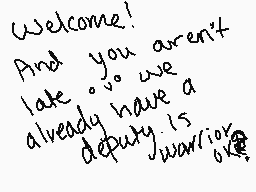 Welcome!
And you aren't
late °v° we
already have a
deputy. Is
warrior
ok?